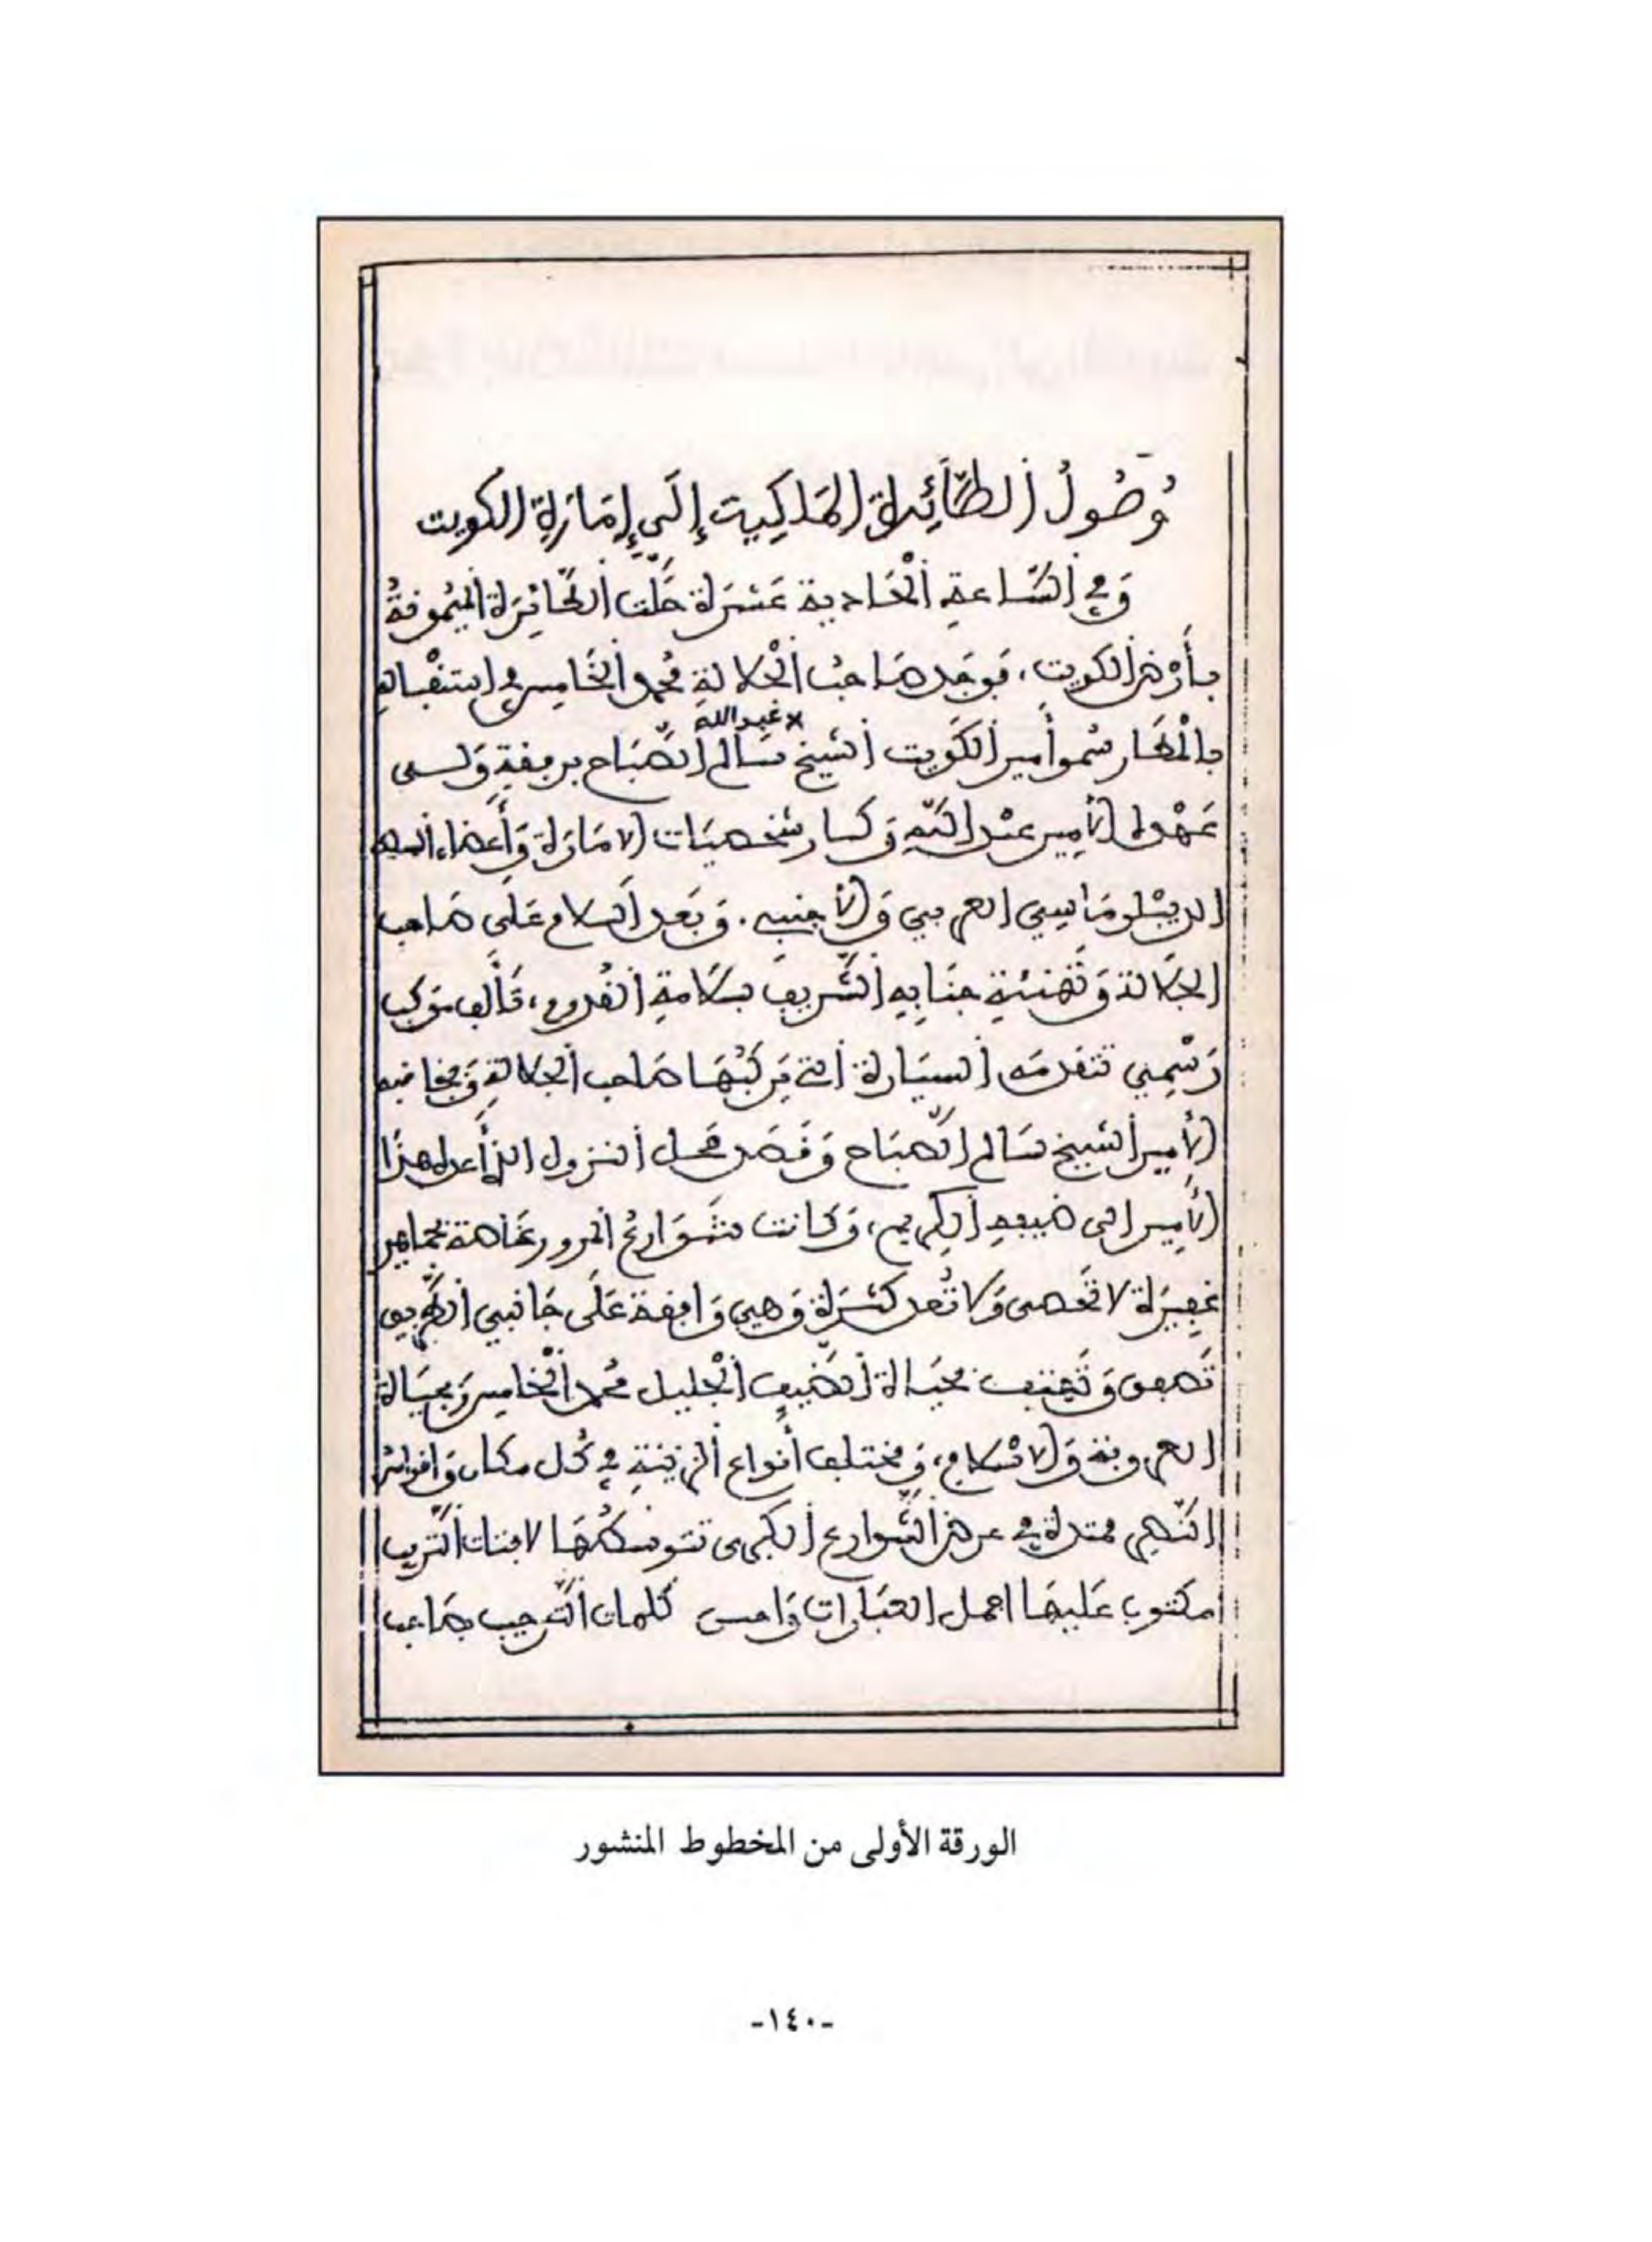 وُصُولُ الطَّائِرَةِ المَلَكِيَّةِ إِلَى إِمَارَةِ الكويت
وَفِي السَّاعةِ الْحَادية عَشرَة حَلَّت الطَّائِرَة المَيْمُونةُ
بأَرْضِ الكويت، فَوجَد صَاحبُ الْجَلالةِ مُحمد الخَامِس فِي استقْبالهِ
بالْمَطَار سُمو أَمير الكَوَيت الشَيخ سَالم الصَّبَاح برفقةِ وَلي
× عَبد الله
عَهْده الأَمير عبْد اللَّه وَكبار شخصيَات الامَارَة وَأَعضاء السلك
الدبْلومَاسِي العربي وَالأجنبي. وَبَعد السلام عَلَى صَاحب
الجَلالة وَتَهنئة جنَابِهِ الشَّريف بسَلامةِ القُدوم، تَأَلف مَوكب
رَسْمِي تتقدمَه السيَارة التي يَركَبُهَا صَاحب الجَلالة وَبجَانبه
الأَمير الشيخ سَالم الصَّبَاح وَقَصَد مَحل النزول الذي أَعده هذَا
الأَمِير الى ضَيفه الكِريم، وَكَانت شَوَارعُ المرور غَاصة بجَماهر
غَفِيرَة لا تحْصى وَلا تُعد كَثرَة وَهي وَاقفة عَلَى جَانبي الطَّريق
تَصفق وَتَهتف بحَيَاة الضَيف الْجليل مُحمد الْخَامِس وَبحيَاة
العروبة وَالاسْلام، وَمختلف أَنواع الزينَةِ فِي كُل مكان وَاقواس
النَّصر ممتدة فِي عرض الشَّوارع الكبرى تتوسطُهَا لافتات التَّرحيب
مكتوب عَليهَا اجمل العبَارات وَاحسن كَلمات التَّرحيب بصَاحب
الورقة الأولى من المخطوط المنشور
-١٤٠-